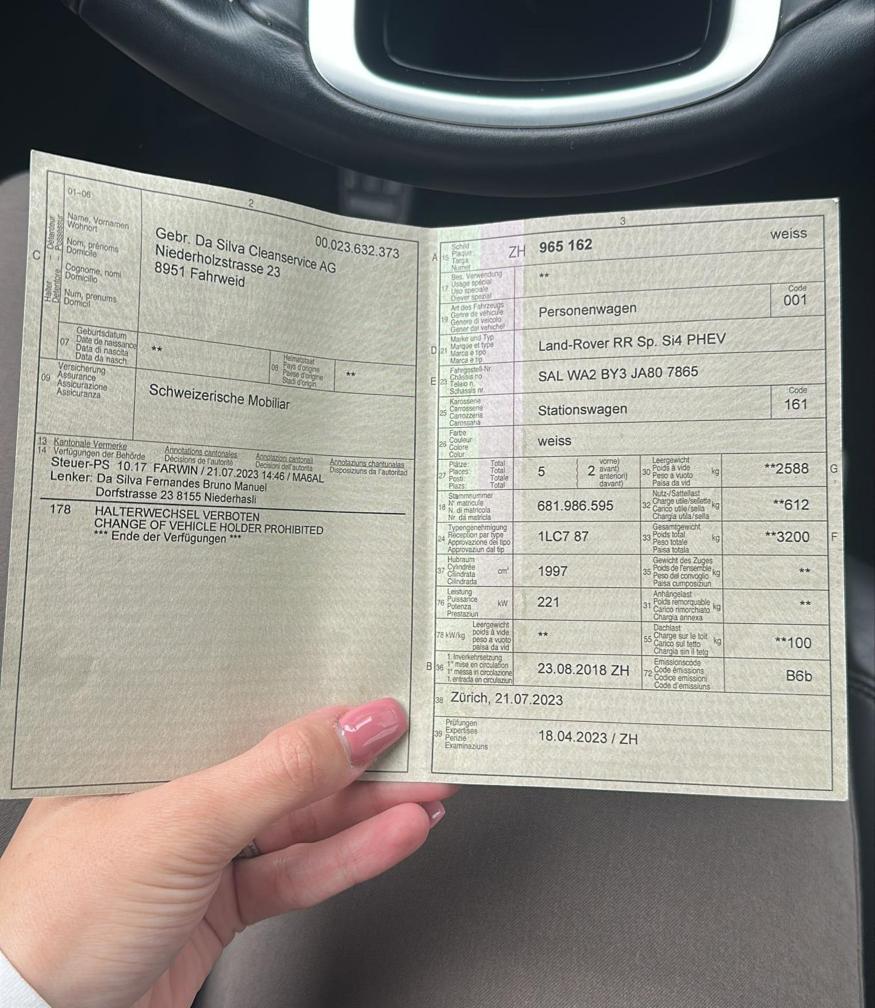 01-06
2
C
Name, Vornamen
Wohnort
Nom, prénoms
Domicile
Cognome, nomi
Domicilio
Num, prenums
Domicil
00.023.632.373
Gebr. Da Silva Cleanservice AG
Niederholzstrasse 23
8951 Fahrweid
07
Geburtsdatum
Date de naissance
Data di nascita
Data da nasch.
**
08
Heimatstaat
Pays d'origine
Paese d'origine
Stadi d'origin
**
09
Versicherung
Assurance
Assicurazione
Assicuranza
Schweizerische Mobiliar
13 Kantonale Vermerke
Annotations cantonales
Annotazioni cantonali
Annotaziuns chantunalas
14 Verfügungen der Behörde
Décisions de l'autorité
Decisioni dell'autorità
Disposiziuns da l'autoritad
Steuer-PS 10.17 FARWIN / 21.07.2023 14:46 / MA6AL
Lenker: Da Silva Fernandes Bruno Manuel
Dorfstrasse 23 8155 Niederhasli
178 HALTERWECHSEL VERBOTEN
CHANGE OF VEHICLE HOLDER PROHIBITED
*** Ende der Verfügungen ***
3
A
15
Schild
Plaque
Targa
Numer
ZH 965 162 weiss
17
Bes. Verwendung
Usage spécial
Uso speciale
Diever spezial
**
19
Art des Fahrzeugs
Genre de véhicule
Genere di veicolo
Gener dal vehichel
Personenwagen
Code
001
D
21
Marke und Typ
Marque et type
Marca e tipo
Marca e tip
Land-Rover RR Sp. Si4 PHEV
E
23
Fahrgestell-Nr.
Châssis no
Telaio n.
Schassis nr.
SAL WA2 BY3 JA80 7865
25
Karosserie
Carrosserie
Carrozzeria
Carossaria
Stationswagen
Code
161
26
Farbe
Couleur
Colore
Colur
weiss
27
Plätze: Total
Places: Total
Posti: Totale
Plazs: Total
5
2
vorne)
avant)
anteriori)
davant)
30
Leergewicht
Poids à vide
Peso a vuoto
Paisa da vid
kg
**2588
G
18
Stammnummer
N° matricule
N. di matricola
Nr. da matricla
681.986.595
32
Nutz-/Sattellast
Charge utile/sellette
Carico utile/sella
Chargia utila/sella
kg
**612
24
Typengenehmigung
Réception par type
Approvazione del tipo
Approvaziun dal tip
1LC7 87
33
Gesamtgewicht
Poids total
Peso totale
Paisa totala
kg
**3200
F
37
Hubraum
Cylindrée
Cilindrata
Cilindrada
cm³
1997
35
Gewicht des Zuges
Poids de l'ensemble
Peso del convoglio
Paisa cumposiziun
kg
**
76
Leistung
Puissance
Potenza
Prestaziun
kW
221
31
Anhängelast
Poids remorquable
Carico rimorchiato
Chargia annexa
kg
**
78 kW/kg
Leergewicht
poids à vide
peso a vuoto
paisa da vid
**
55
Dachlast
Charge sur le toit
Carico sul tetto
Chargia sin il tetg
kg
**100
B
36
1. Inverkehrsetzung
1re mise en circulation
1a messa in circolazione
1. entrada en circulaziun
23.08.2018 ZH
72
Emissionscode
Code émissions
Codice emissioni
Code d'emissiuns
B6b
38 Zürich, 21.07.2023
39
Prüfungen
Expertises
Perizie
Examinaziuns
18.04.2023 / ZH